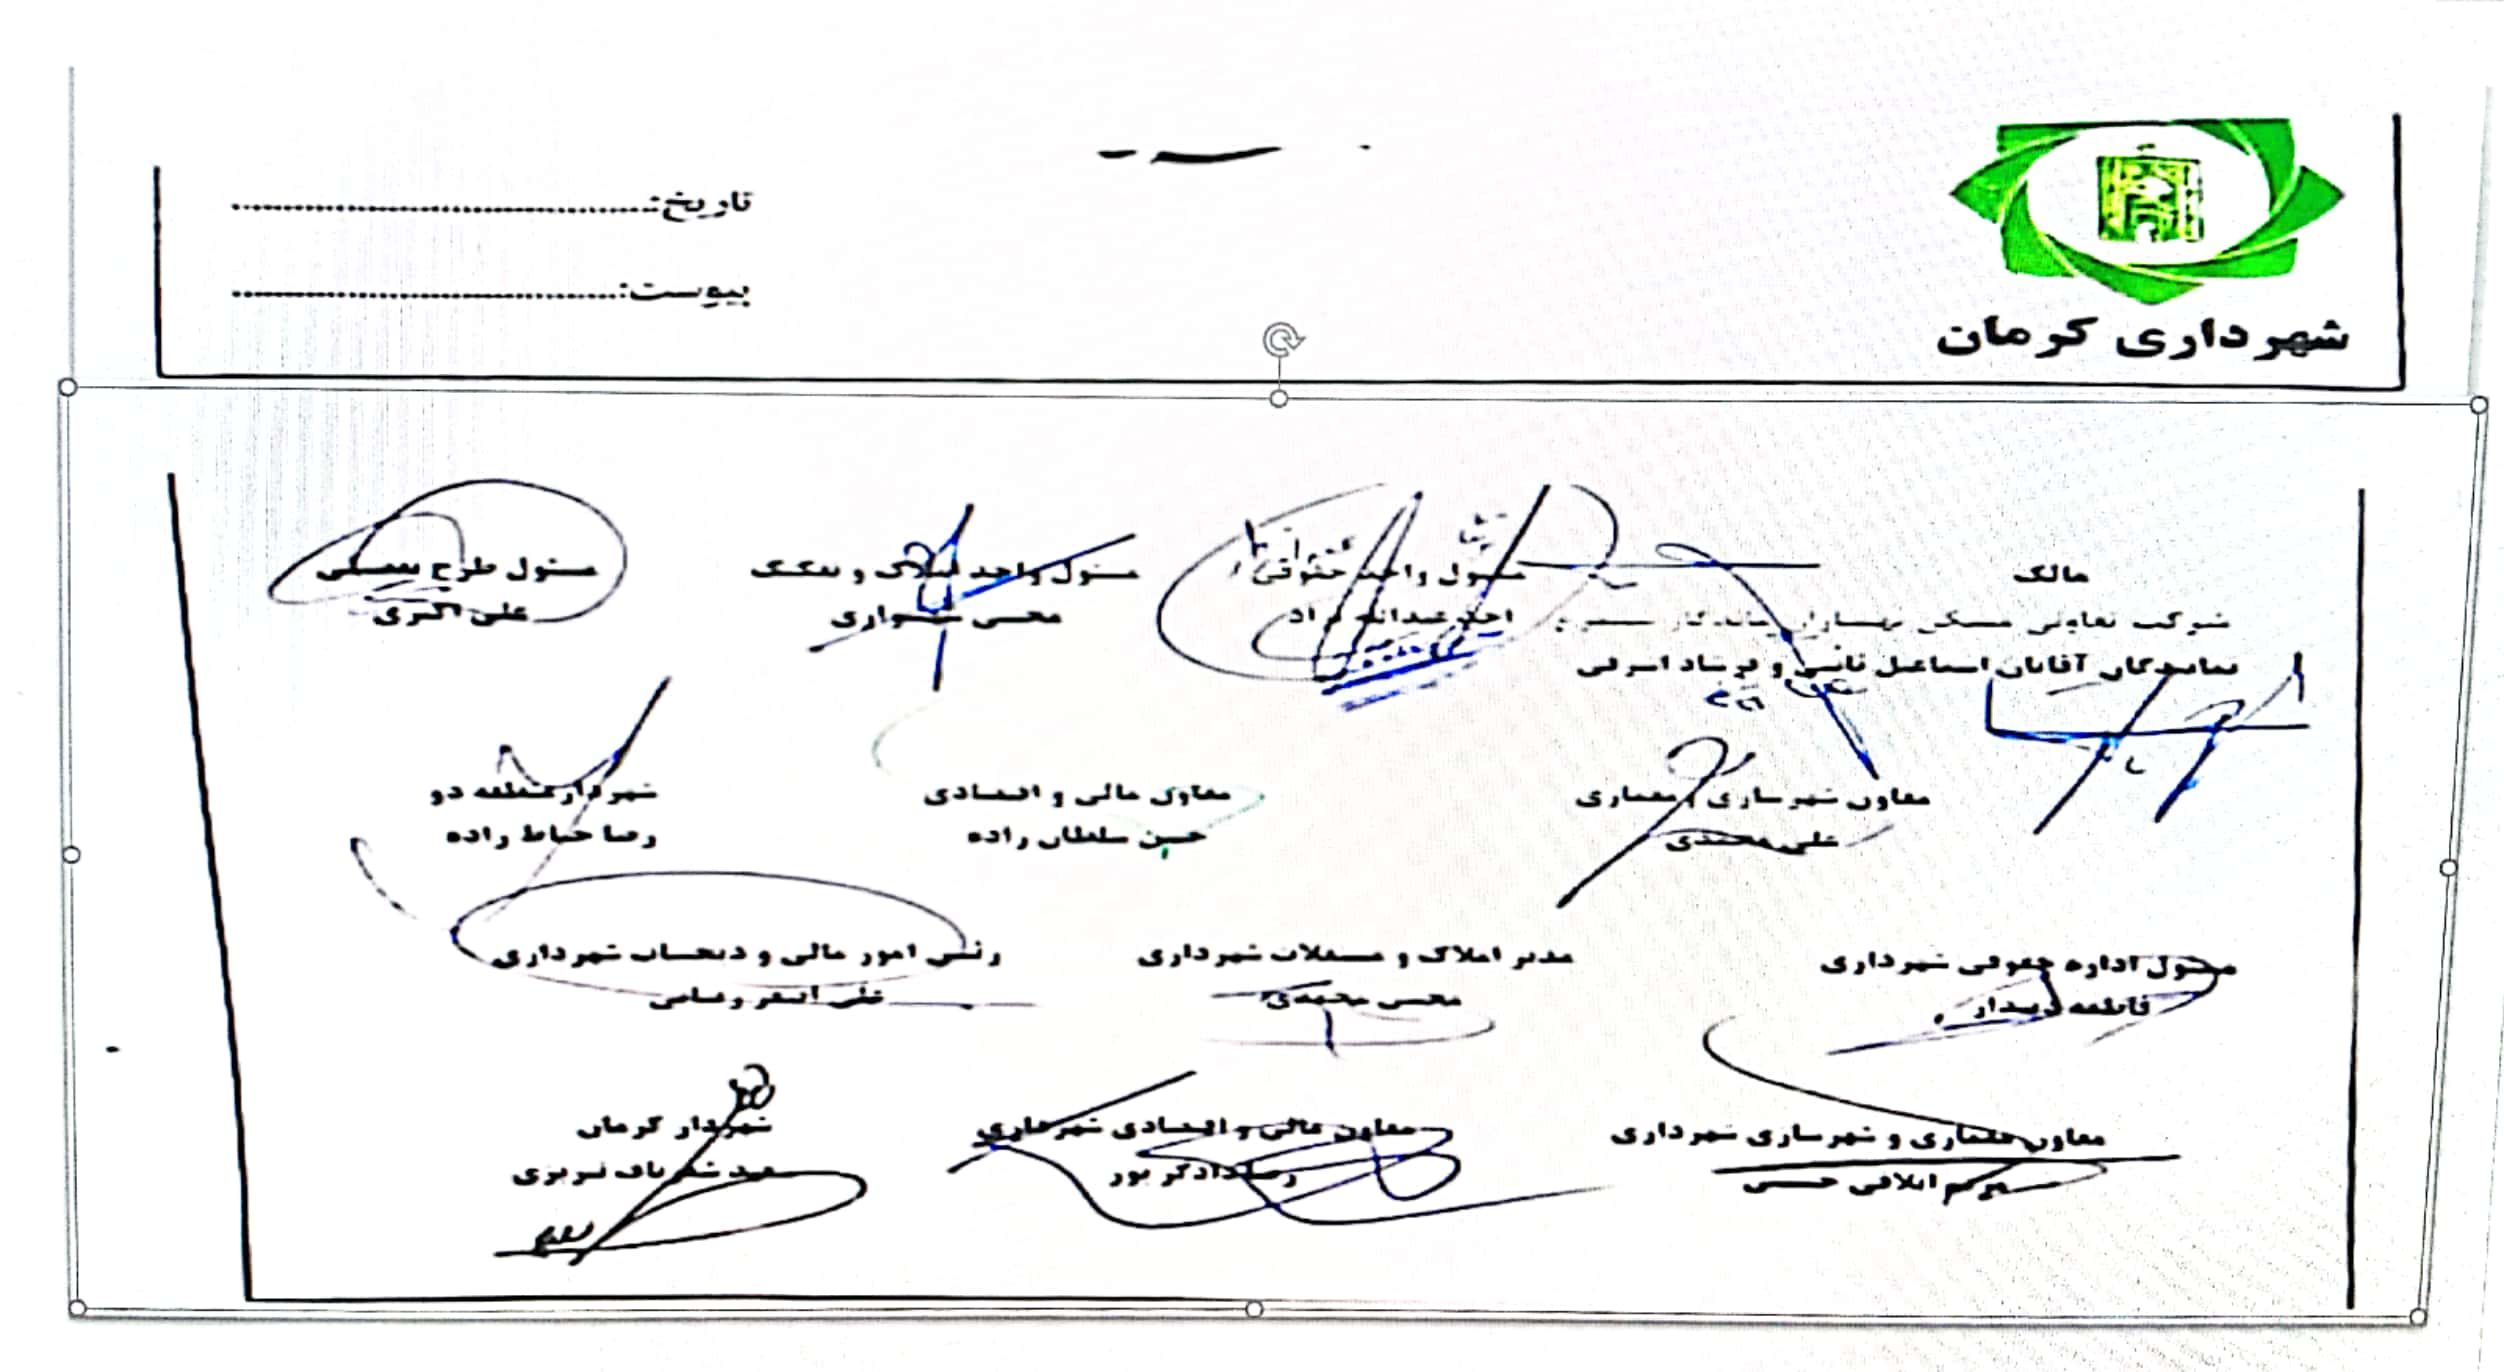 شهرداری کرمان
تاریخ:
پیوست:
مالک
شرکت تعاونی مسکن بهسازان ماندگار
نمایندگان آقایان اسماعیل و فرشاد اشرفی
مسئول واحد حقوقی
مسئول واحد املاک و تفکیک
محسن
مسئول طرح تفصیلی
علی اکبری
معاون شهرسازی و معماری
علی محمدی
معاون مالی و اقتصادی
حسن سلطان زاده
شهردار منطقه دو
رضا خیاط زاده
مسئول اداره حقوقی شهرداری
فاطمه دیندار
مدیر املاک و مستغلات شهرداری
محسن محمدی
رئیس امور مالی و ذیحساب شهرداری
علی اصغر
معاون معماری و شهرسازی شهرداری
مریم ایلاقی حسینی
معاون مالی و اقتصادی شهرداری
رضا دادگر پور
شهردار کرمان
سعید شعرباف تبریزی